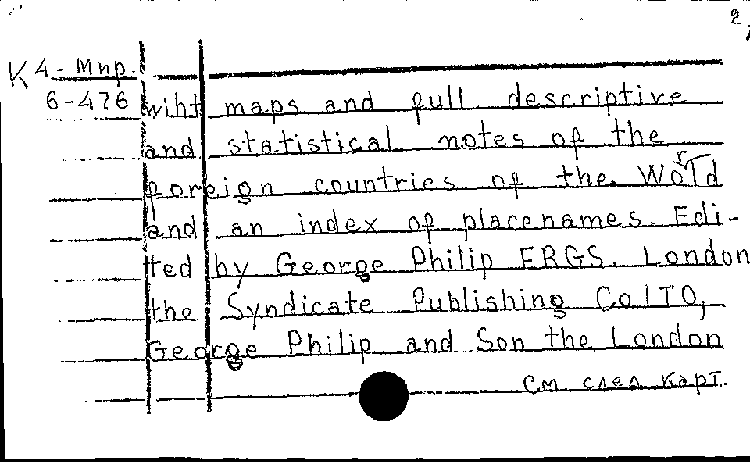 2
К 4-Мир.
6-476
wiht maps and full descriptive
and statistical notes of the
foreign countries of the World
and an index of placenames. Edi-
ted by George Philip FRGS. London
the Syndicate Publishing Co LTD,
George Philip and Son the London
См след карт.